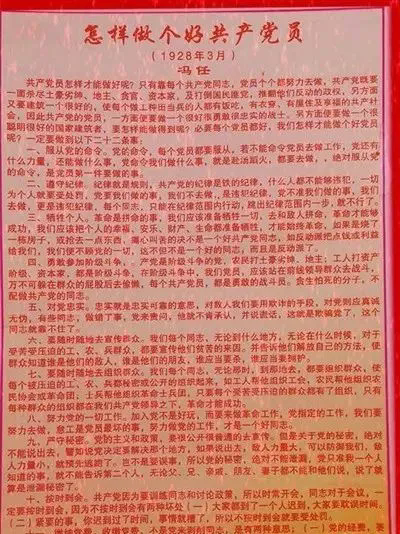 怎样做个好共产党员
(1928年3月)
冯任
共产党员怎样才能做好呢?只有靠每个共产党同志,党员个个都努力去做,共产党既要
一面杀尽土豪劣绅、地主、贪官、资本家,及打倒国民党,推翻他们反动的政权,另方面
又要建筑一个很好的,使每个做工种田当兵的人都有饭吃,有衣穿,有屋住及享福的共产社
会,因此共产党的党员,一方面便要做一个很好很勇敢很忠实的战士,另方面便要做一个很
聪明很好的国家建筑者,要怎样能做得到呢?必要每个党员都好,我们怎样才能做个好党员
呢?一定要做到以下二十二条事:
一、服从党的命令。党的命令,每个党员都要服从,若不能命令党员去做工作,党还有
什么力量,还能做什么事,党命令我们做什么事,就是赴汤蹈火,都要去做,绝对服从党
的命令,是党员第一件要做的事。
二、遵守纪律。纪律就是规则,共产党的纪律是铁的纪律,什么人都不能够违犯,一切
为个人就要受处罚,党要我们做的事,我们不去做,是违犯纪律,党不准我们做的事,我们
去做,更是违犯纪律,每个同志,只能在纪律范围内行动,跳出纪律范围内一步,就不行了。
三、牺牲个人。革命是拼命的事,我们应该准备牺牲一切,去和敌人拼命,革命才能够
成功,我们应该把个人的幸福、安乐、财产、生命都准备牺牲,才能始终革命,如果是烧了
一栋房子,或抢去一点东西,痛心叫苦的决不是一个好共产党同志,如反动派把点钱或利益
给我们,我们便不顾党的一切,这不但不是一个好的同志,而且是反动派了。
四、勇敢参加阶级斗争。共产党是阶级斗争的党,农民打土豪劣绅、地主;工人打资产
阶级、资本家,都是阶级斗争,在阶级斗争中,我们党员,应该站在前线领导群众去战斗,
万不可躲在群众的屁股后去偷懒,每个共产党员,都是勇敢的战斗员。贪生怕死的分子,不
配做共产党的同志。
五、对党忠实。忠实就是忠实可靠的意思,对敌人我们要用欺诈的手段,对党则应真诚
无伪,有些同志,做错了事,党来责问他,他就不肯承认,并说谎话,这就是欺骗党了,这个
同志就靠不住了。
六、要随时随地去宣传群众。我们每个同志,无论到什么地方,无论在什么时候,对于
受苦受压迫的工、农、兵群众,都要宣传他们贫苦的来因。并告诉他们解放自己的方法,使
群众知道谁是他们的敌人、谁是他们的朋友、谁应当要杀、谁应当要拥护。
七、要随时随地去组织群众。我们每个同志,无论那时,到那时地去,都要组织群众,使
每个被压迫的工、农、兵都秘密或公开的组织起来,如工人帮他组织工会,农民帮他组织农
民协会或革命团;士兵帮他组织革命士兵团,只要每个受苦的群众都有了组织,只有
每种群众的组织都在我们共产党领导之下,革命才能成功。
八、努力党的一切工作。加入党不是好玩,而要来做革命工作,党指定的工作,我们要
努力去做,怠工是党员最坏的事,努力做党的工作,才是一个好同志。
九、严守秘密。党的主义和政策,要很公开很普遍的去宣传。但是关于党的秘密,绝对
不能说出去,譬如说党决定要解决那个地方,如果说出去,敌人力量大,可以防御我们,敌
人力量小,就预先逃跑了。岂不是要误事,所以党的秘密,绝对不能泄漏,党只准我一个人
知道的事,就不能告诉第二个人,无论父、兄、亲戚、朋友、妻子都不能和他们说,说了就
算是泄漏秘密了。
十、按时到会。共产党因为要训练同志和讨论政策,所以时常开会,同志对于会议,一
定要按时到会,因为不按时到会有两种坏处(一)大家都到了一个人迟到,大家要耽误时间。
(二)紧要的事,你迟到过了时间,事情就糟了,所以不按时到会就要受处罚。